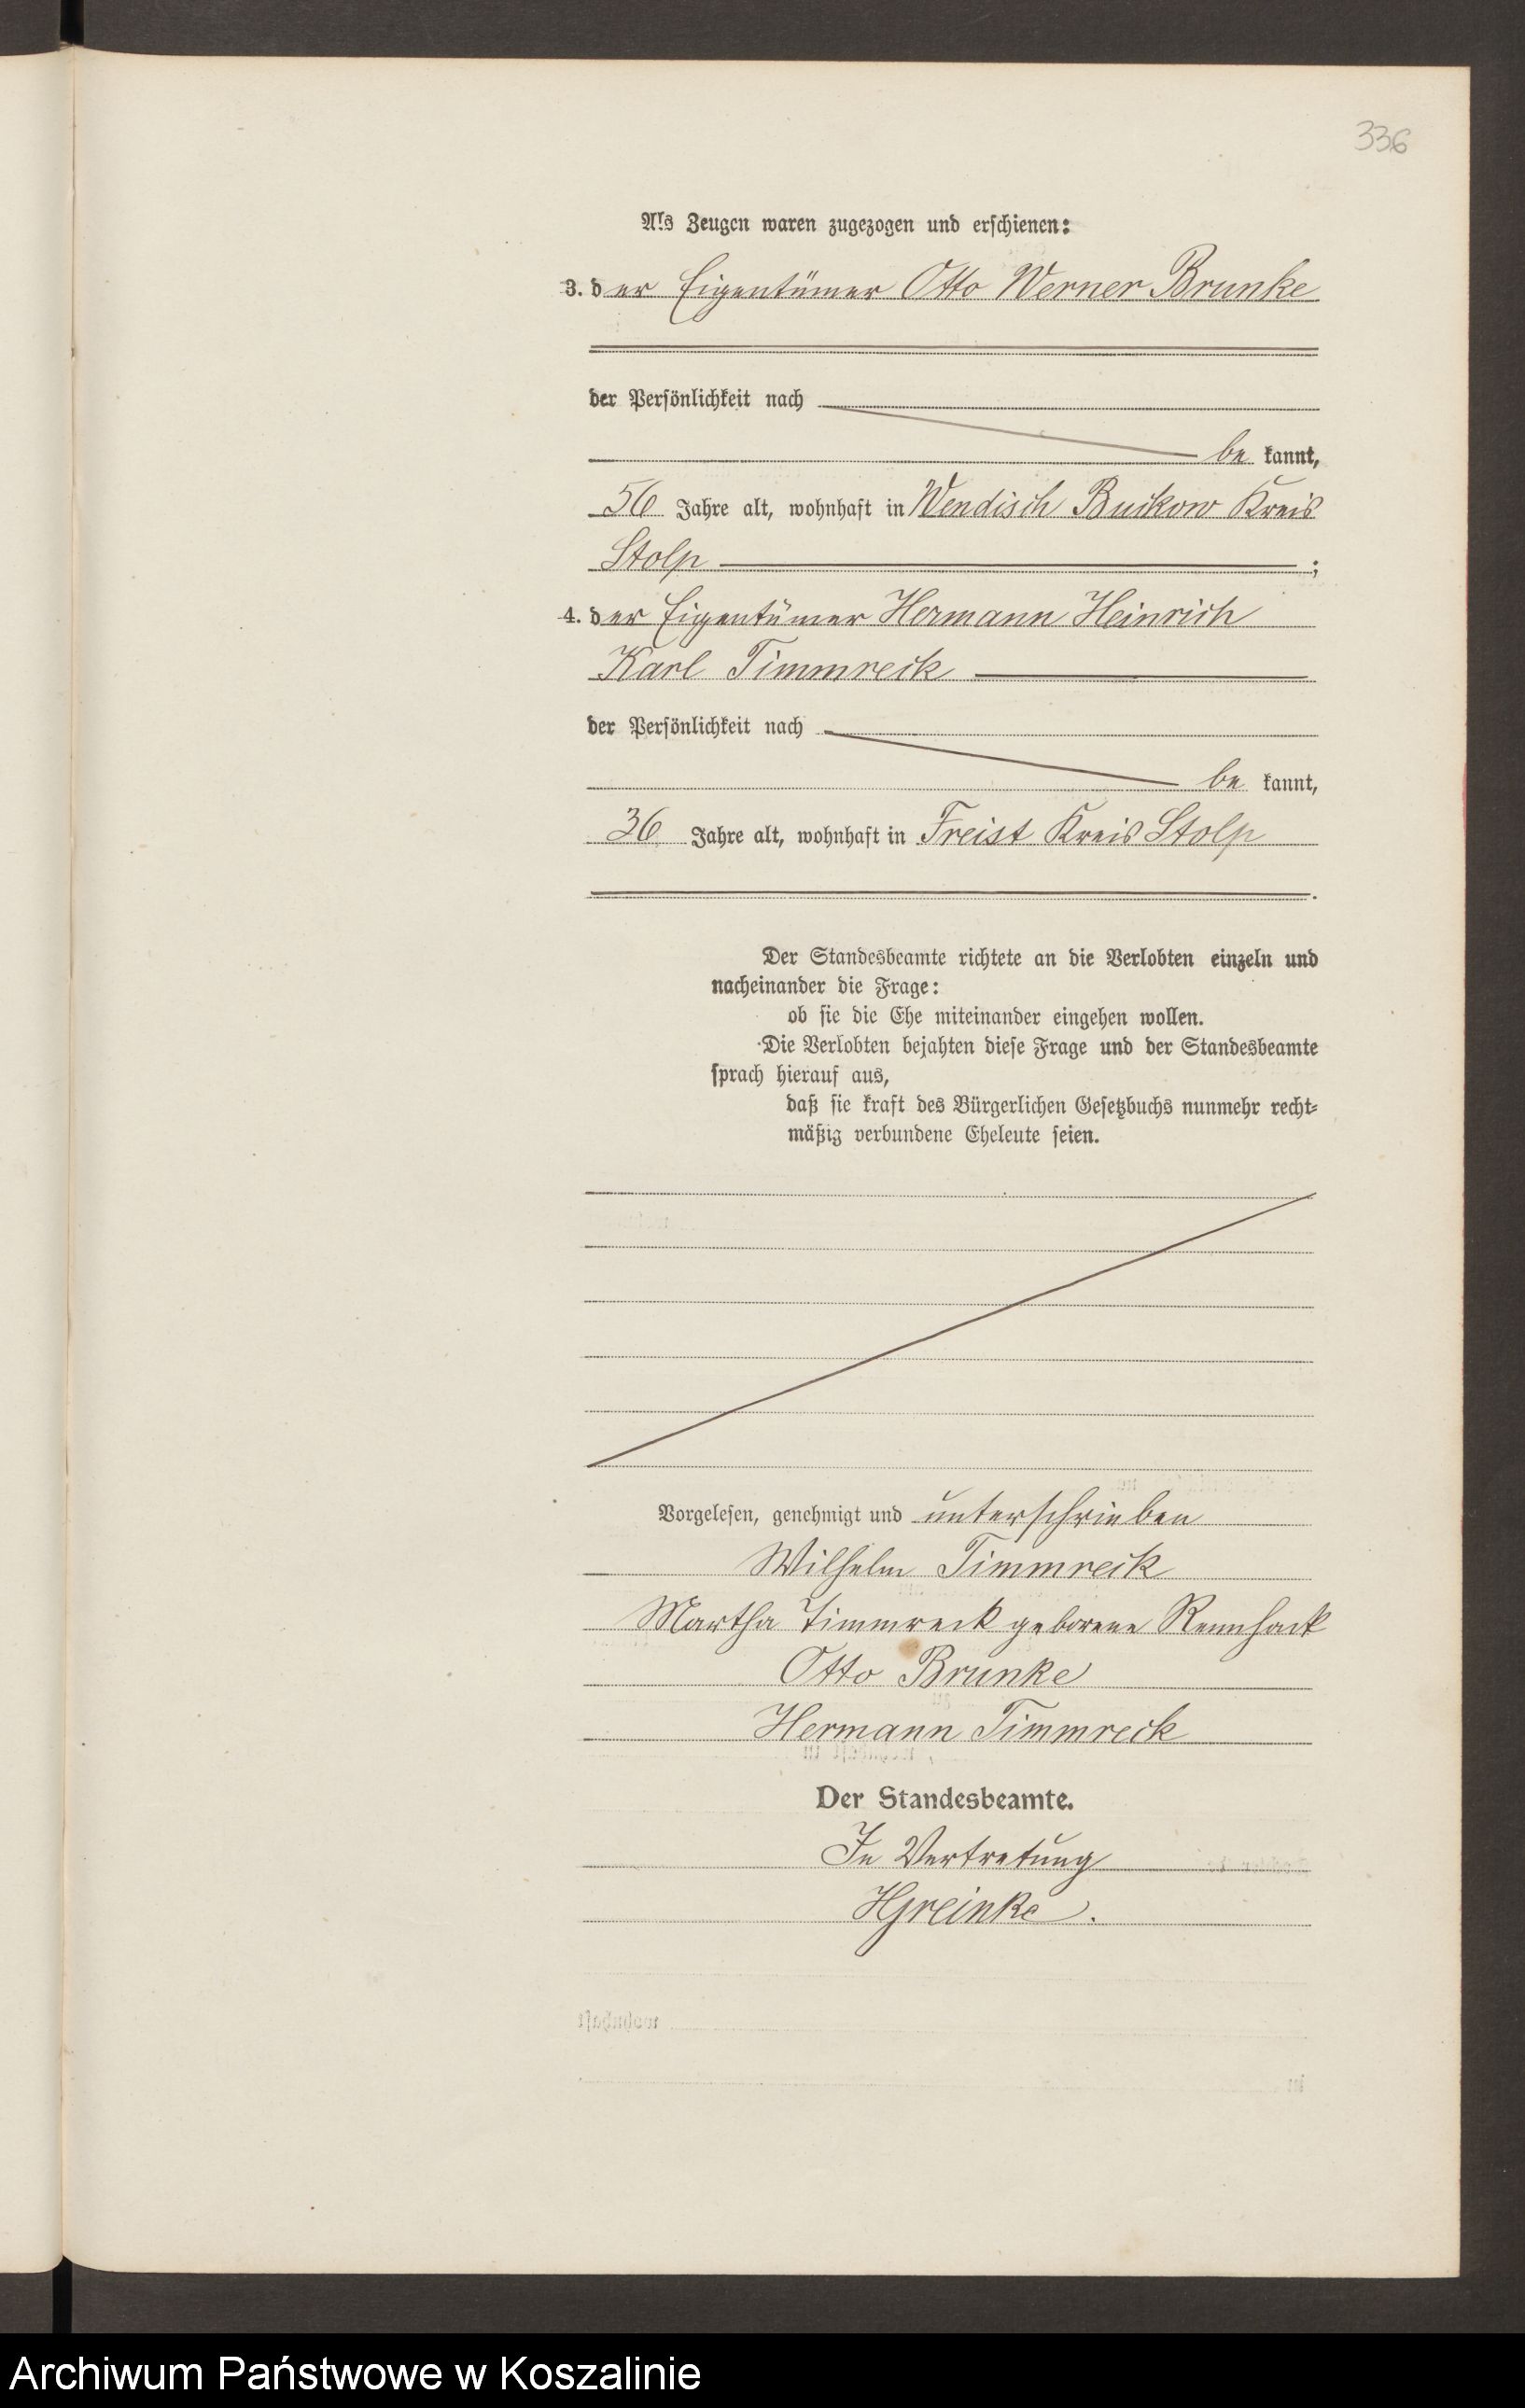 336
Als Zeugen waren zugezogen und erschienen:
3. der Eigentümer Otto Werner Brunke
der Persönlichkeit nach
be kannt,
56 Jahre alt, wohnhaft in Wendisch Buckow Kreis
Stolp ;
4. der Eigentümer Hermann Heinrich
Karl Timmreck
der Persönlichkeit nach
be kannt,
36 Jahre alt, wohnhaft in Freist Kreis Stolp
.
Der Standesbeamte richtete an die Verlobten einzeln und
nacheinander die Frage:
ob sie die Ehe miteinander eingehen wollen.
Die Verlobten bejahten diese Frage und der Standesbeamte
sprach hierauf aus,
daß sie kraft des Bürgerlichen Gesetzbuchs nunmehr recht-
mäßig verbundene Eheleute seien.
Vorgelesen, genehmigt und unterschrieben
Wilhelm Timmreck
Martha Timmreck geborene Rennhack
Otto Brunke
Hermann Timmreck
Der Standesbeamte.
In Vertretung
HGreinke.
wohnhaft
in
Archiwum Państwowe w Koszalinie